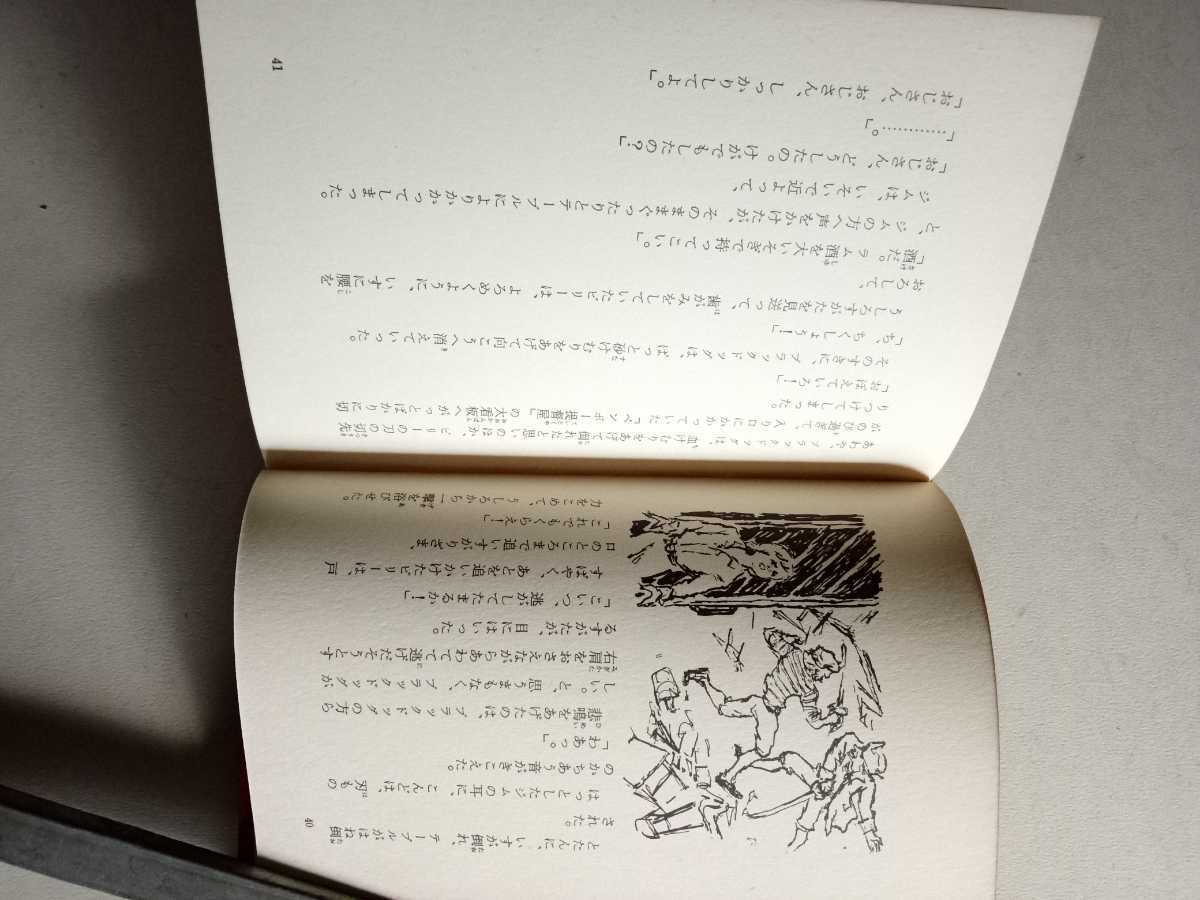 とたんに、いすが倒れ、テーブルがはね倒
された。
はっとしたジムの耳に、こんどは、刃もの
のかちあう音がきこえた。
「わあっ。」
悲鳴をあげたのは、ブラックドッグの方ら
しい。と、思うまもなく、ブラックドッグが
右肩をおさえながらあわてて逃げだそうとす
るすがたが、目にはいった。
「こいつ、逃がしてたまるか！」
すばやく、あとを追いかけたビリーは、戸
口のところまで追いすがりざま、
「これでもくらえ！」
力をこめて、うしろから一撃を浴びせた。
40
あわや、ブラックドッグは、血けむりをあげて倒れたと思いのほか、ビリーの刀の切先
がのび過ぎて、入り口にかかっていた「ベンボー提督屋」の大看板へがっとばかりに切
りつけてしまった。
「おぼえていろ！」
そのすきに、ブラックドッグは、ぱっと砂けむりをあげて向こうへ消えていった。
「ち、ちくしょう！」
うしろすがたを見送って、歯がみをしていたビリーは、よろめくように、いすに腰を
おろして、
「酒だ。ラム酒を大いそぎで持ってこい。」
と、ジムの方へ声をかけたが、そのままぐったりとテーブルによりかかってしまった。
ジムは、いそいで近よって、
「おじさん、どうしたの。けがでもしたの？」
「…………。」
「おじさん、おじさん、しっかりしてよ。」
41